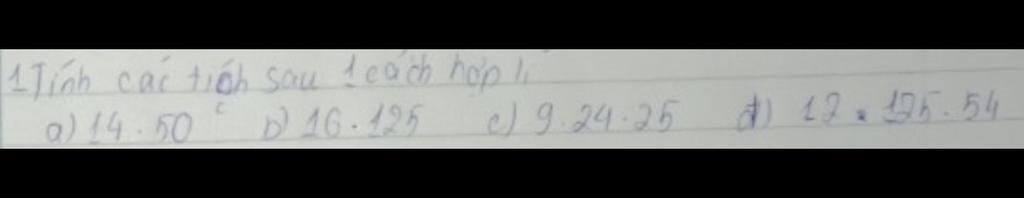 1 Tính các tích sau 1 cách hợp lí
a) 14 . 50 b) 16 . 125 c) 9 . 24 . 25 d) 12 . 125 . 54